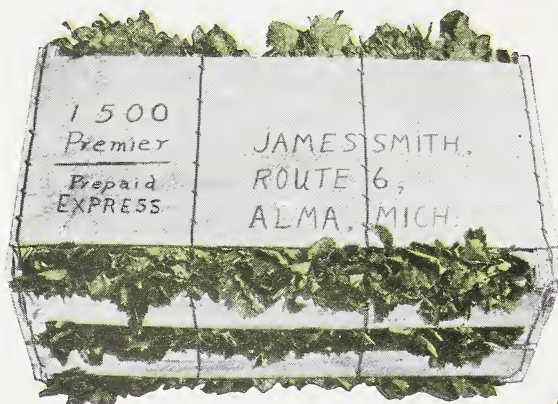 1500
Premier
Prepaid
EXPRESS
JAMES SMITH,
ROUTE 6,
ALMA, MICH.